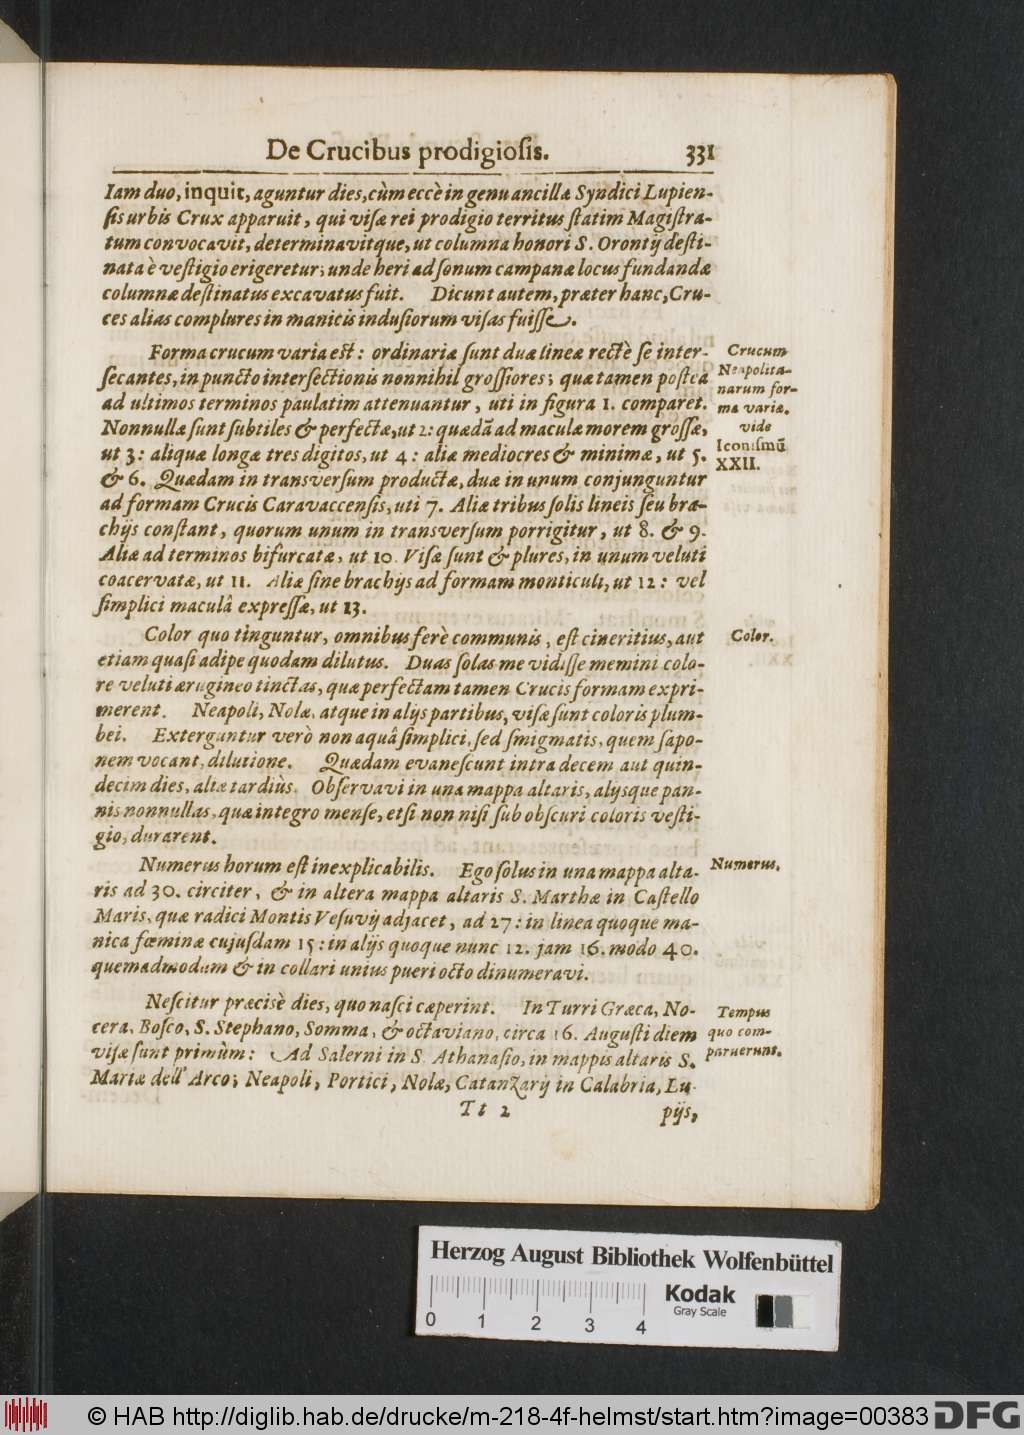 De Crucibus prodigiosis. 331
Iam duo, inquit, aguntur dies, cùm eccè in genu ancillæ Syndici Lupien-
sis urbis Crux apparuit, qui visæ rei prodigio territus statim Magistra-
tum convocavit, determinavitque, ut columna honori S. Orontij desti-
nata è vestigio erigeretur; unde heri ad sonum campanæ locus fundandæ
columnæ destinatus excavatus fuit. Dicunt autem, præter hanc, Cru-
ces alias complures in manicis indusiorum visas fuisse.
Forma crucum varia est: ordinariæ sunt duæ lineæ rectè se inter-
secantes, in puncto intersectionis nonnihil grossiores; quæ tamen postea
ad ultimos terminos paulatim attenuantur, uti in figura 1. comparet.
Nonnullæ sunt subtiles & perfectæ, ut 2: quædā ad maculæ morem grossæ,
ut 3: aliquæ longæ tres digitos, ut 4: aliæ mediocres & minimæ, ut 5.
& 6. Quædam in transversum productæ, duæ in unum conjunguntur
ad formam Crucis Caravaccensis, uti 7. Aliæ tribus solis lineis seu bra-
chijs constant, quorum unum in transversum porrigitur, ut 8. & 9.
Aliæ ad terminos bifurcatæ, ut 10. Visæ sunt & plures, in unum veluti
coacervatæ, ut 11. Aliæ sine brachijs ad formam monticuli, ut 12: vel
simplici maculâ expressæ, ut 13.
Crucum
Neapolita-
narum for-
ma varia.
vide
Iconismū
XXII.
Color quo tinguntur, omnibus ferè communis, est cineritius, aut
etiam quasi adipe quodam dilutus. Duas solas me vidisse memini colo-
re veluti ærugineo tinctas, quæ perfectam tamen Crucis formam expri-
merent. Neapoli, Nolæ, atque in alijs partibus, visæ sunt coloris plum-
bei. Exterguntur verò non aquâ simplici, sed smigmatis, quem sapo-
nem vocant, dilutione. Quædam evanescunt intra decem aut quin-
decim dies, aliæ tardiùs. Observavi in una mappa altaris, alijsque pan-
nis nonnullas, quæ integro mense, etsi non nisi sub obscuri coloris vesti-
gio, durarent.
Color.
Numerus horum est inexplicabilis. Ego solus in una mappa alta-
ris ad 30. circiter, & in altera mappa altaris S. Marthæ in Castello
Maris, quæ radici Montis Vesuvij adjacet, ad 27: in linea quoque ma-
nica fœminæ cujusdam 15: in alijs quoque nunc 12. jam 16. modo 40.
quemadmodum & in collari unius pueri octo dinumeravi.
Numerus.
Nescitur præcisè dies, quo nasci cæperint. In Turri Græca, No-
cera, Bosco, S. Stephano, Somma, & octaviano, circa 16. Augusti diem
visæ sunt primùm: Ad Salerni in S. Athanasio, in mappis altaris S.
Mariæ dell' Arco; Neapoli, Portici, Nolæ, Catanzarij in Calabria, Lu-
Tempus
quo com-
paruerunt.
Tt 2 pijs,
Herzog August Bibliothek Wolfenbüttel
Kodak
Gray Scale
0 1 2 3 4
© HAB http://diglib.hab.de/drucke/m-218-4f-helmst/start.htm?image=00383 DFG